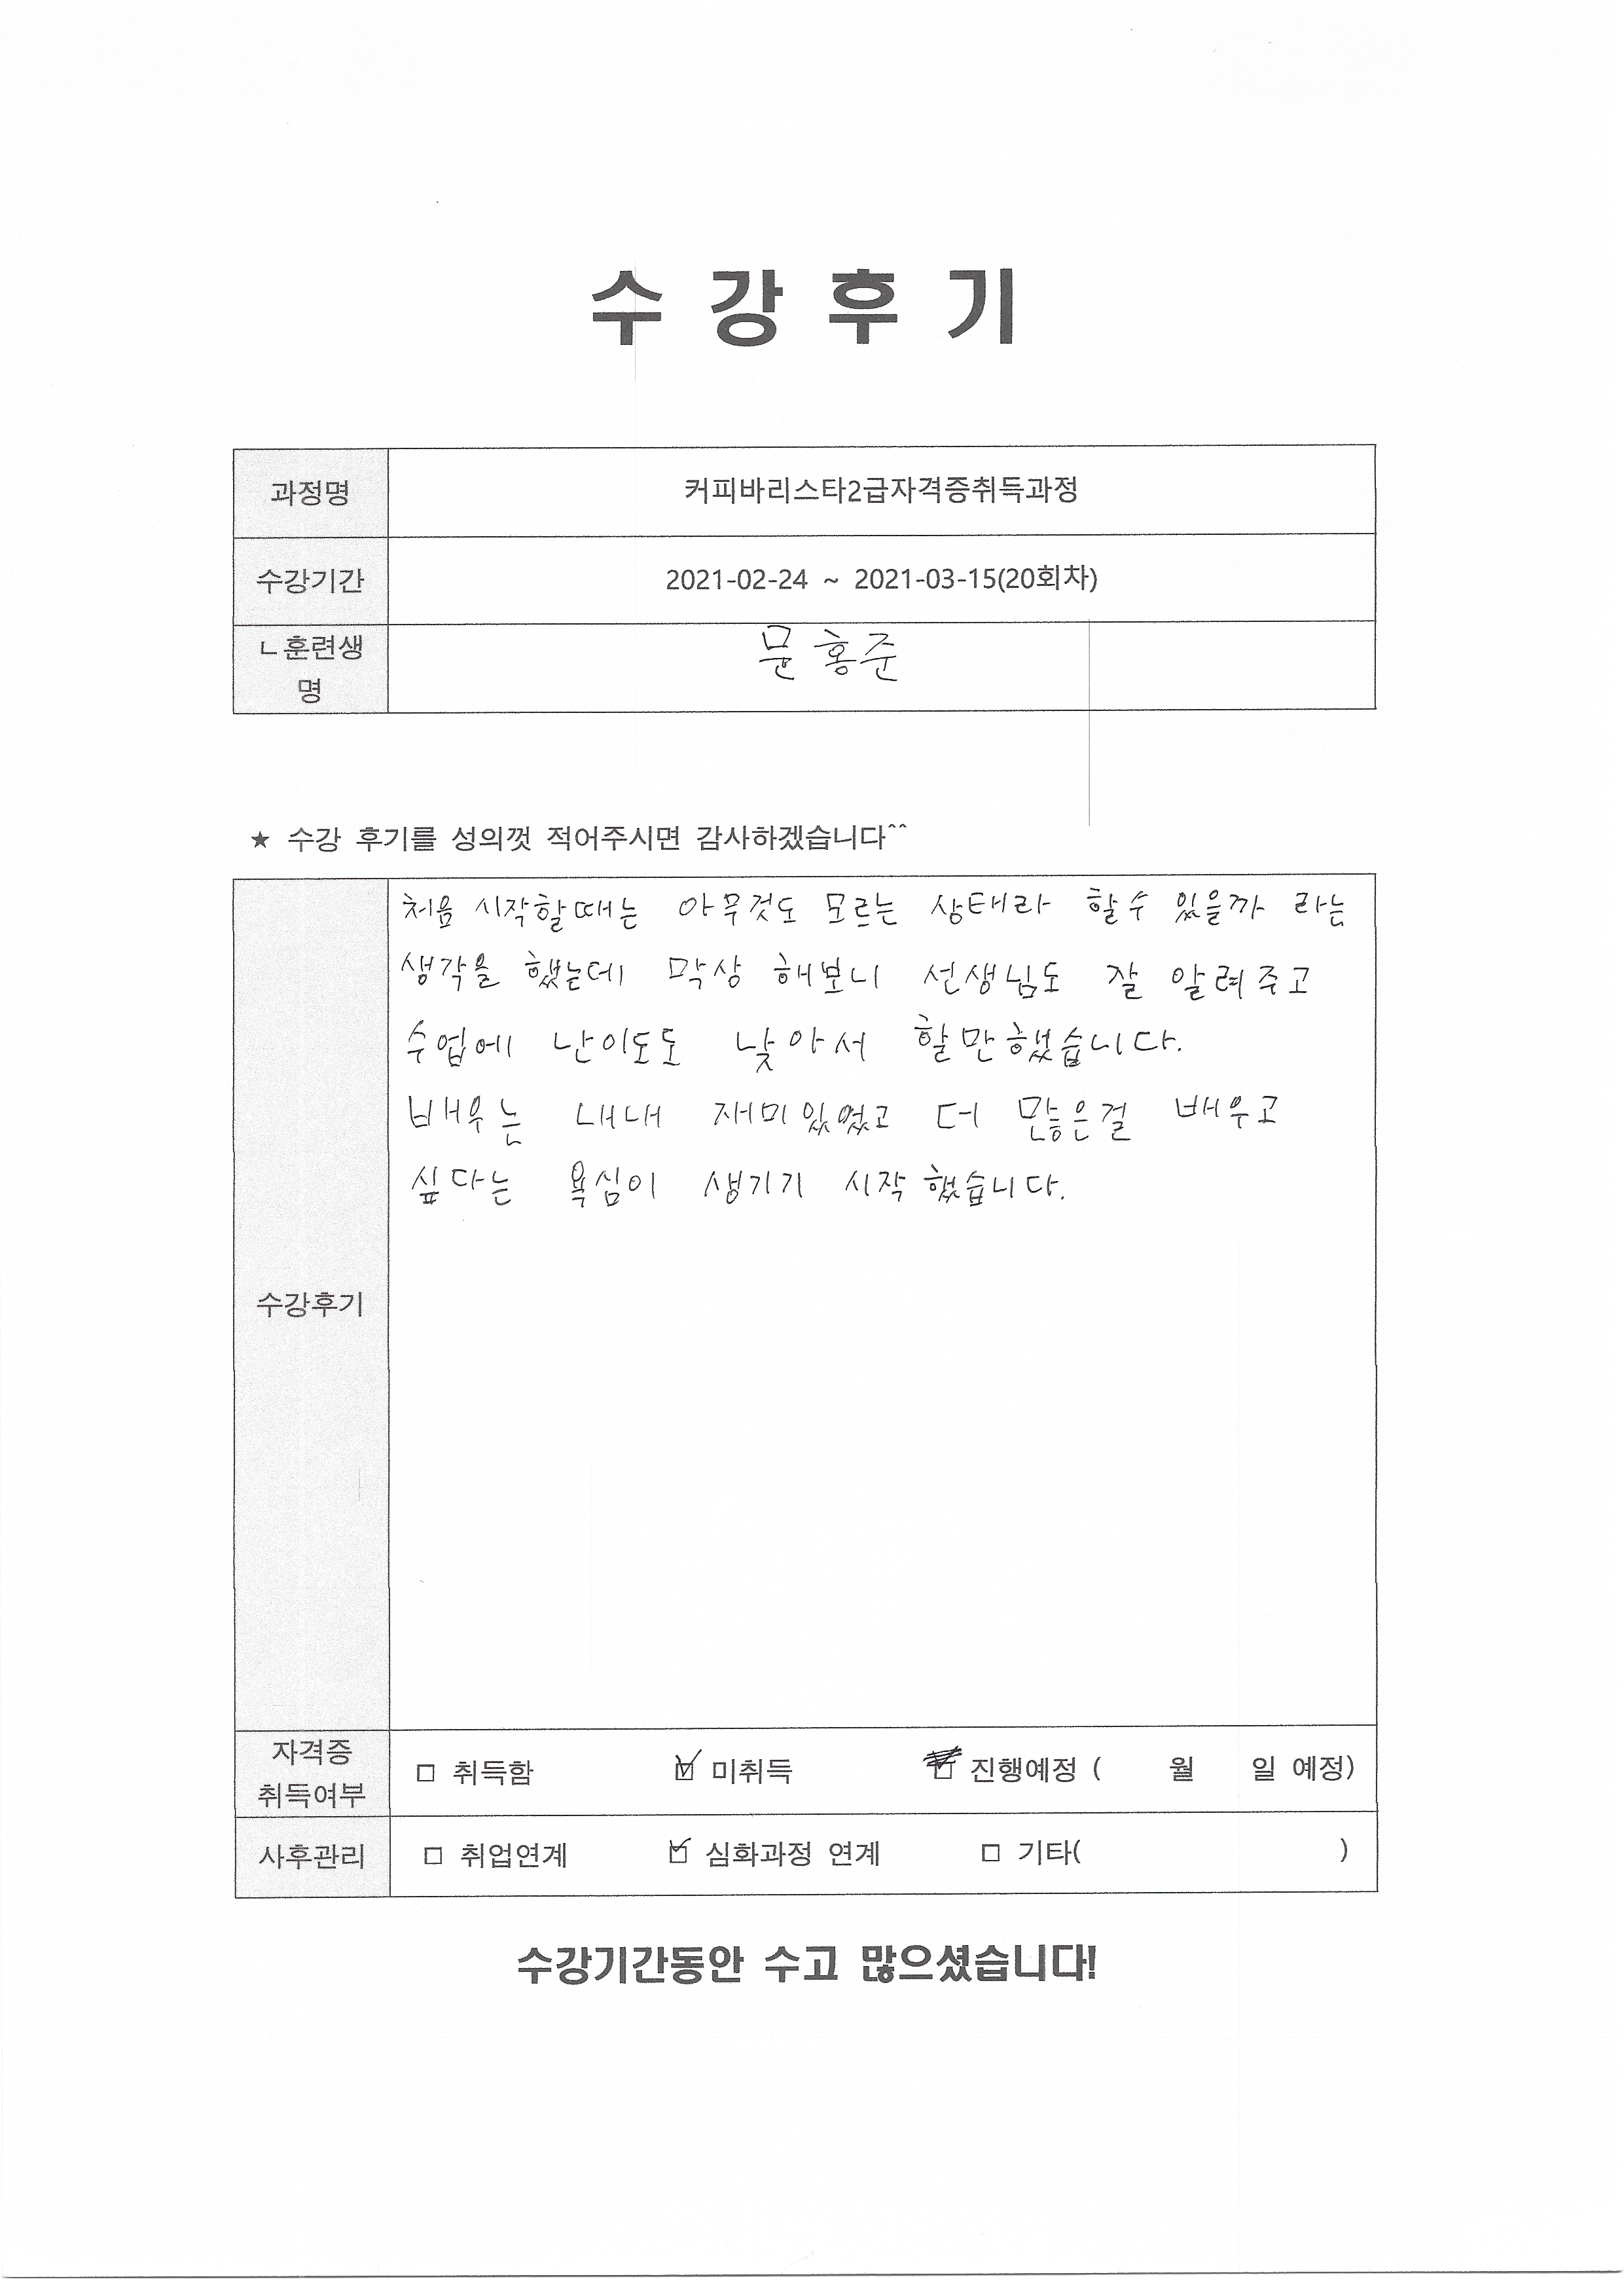 수 강 후 기
과정명 커피바리스타2급자격증취득과정
수강기간 2021-02-24 ~ 2021-03-15(20회차)
ㄴ훈련생
명
문홍준
★ 수강 후기를 성의껏 적어주시면 감사하겠습니다^^
처음 시작할때는 아무것도 모르는 상태라 할수 있을까 라는
생각을 했는데 막상 해보니 선생님도 잘 알려주고
수업에 난이도도 낮아서 할만했습니다.
배우는 내내 재미있었고 더 많은걸 배우고
싶다는 욕심이 생기기 시작했습니다.
수강후기
자격증
취득여부
□ 취득함 ☑ 미취득 □ 진행예정 ( 월 일 예정)
사후관리 □ 취업연계 ☑ 심화과정 연계 □ 기타( )
수강기간동안 수고 많으셨습니다!